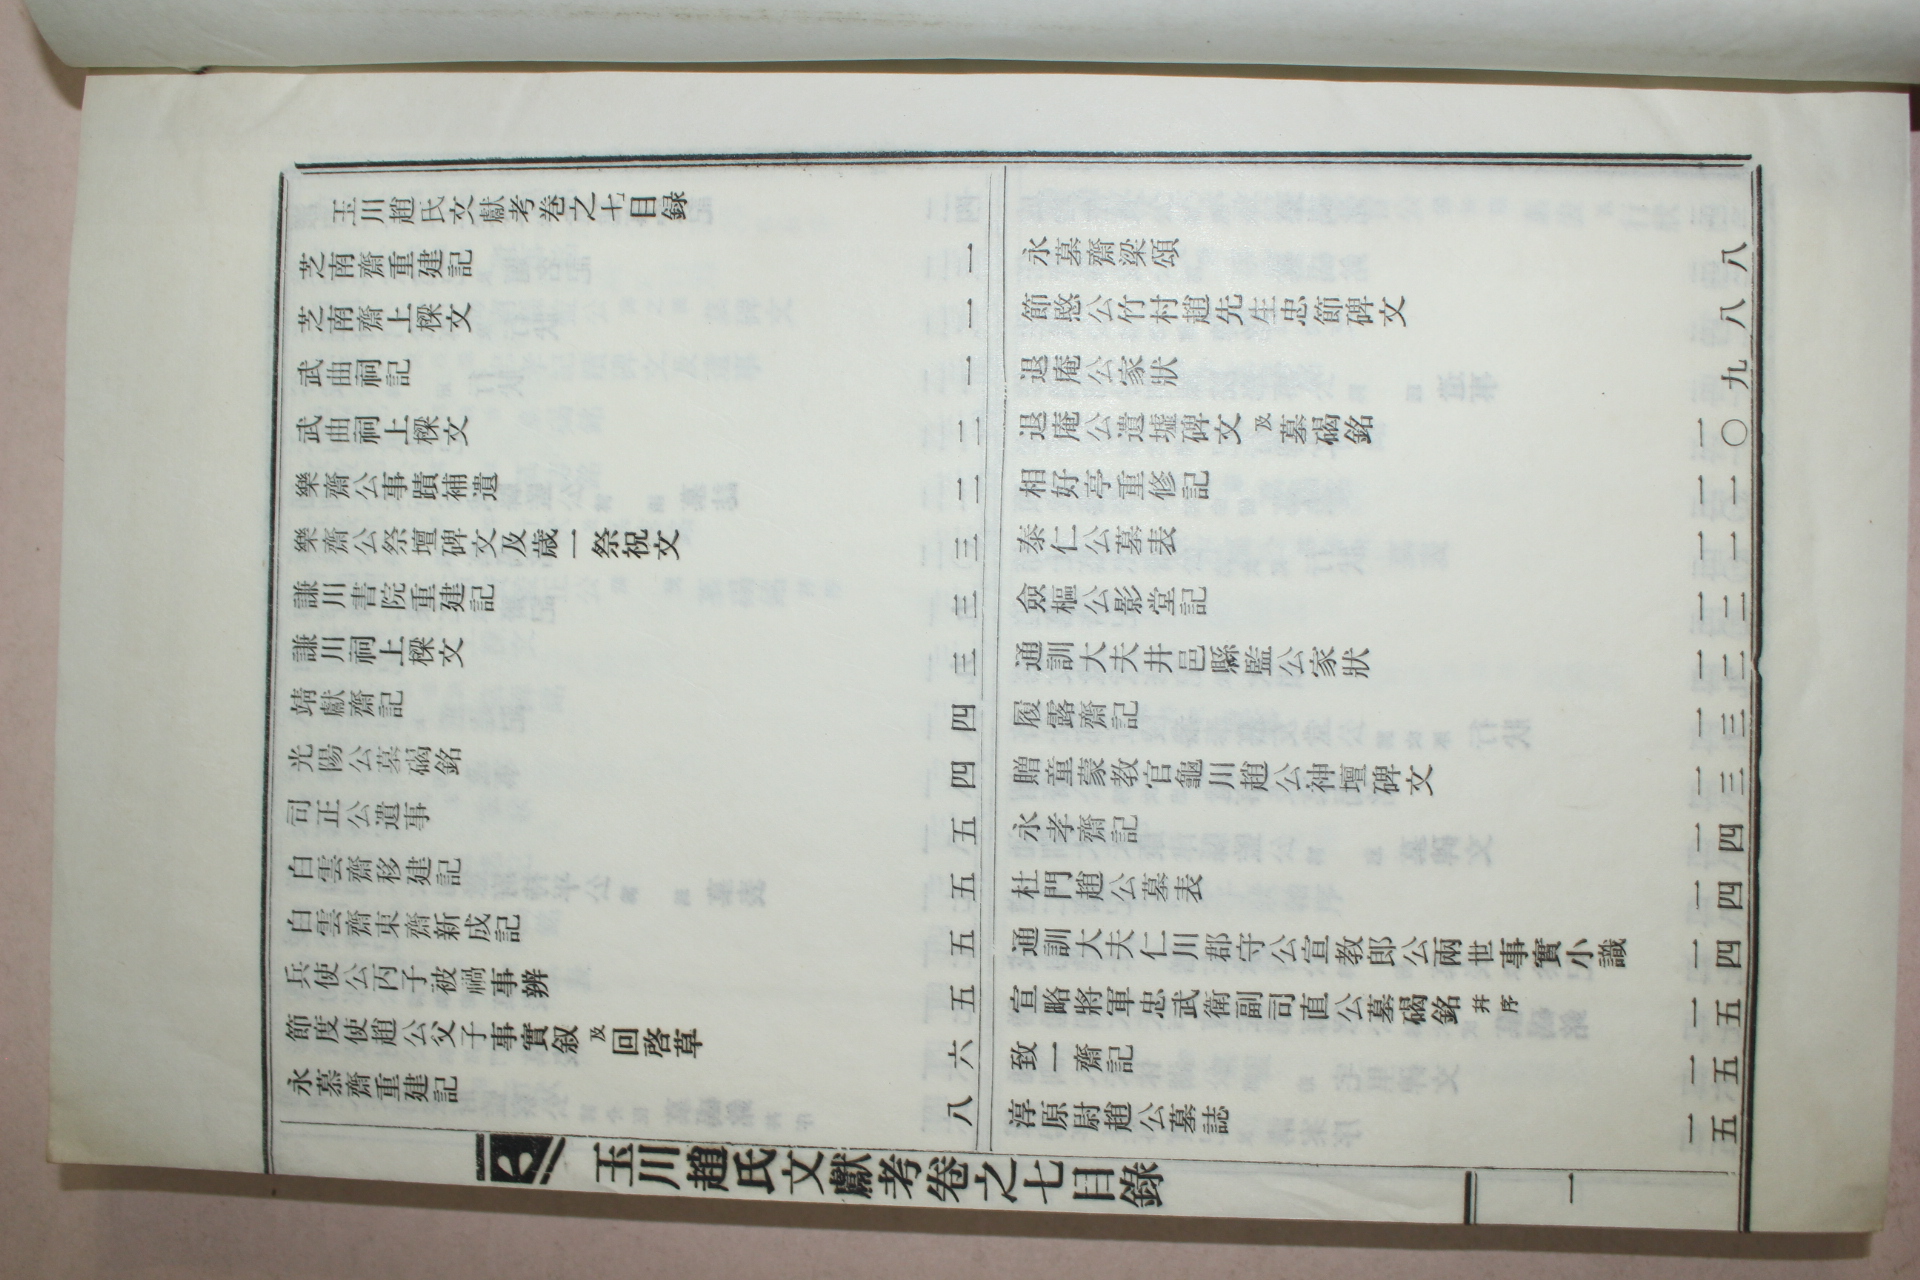 玉川趙氏文獻考卷之七目録
芝南齋重建記 一
芝南齋上樑文 一
武曲祠記 一
武曲祠上樑文 二
樂齋公事蹟補遺 二
樂齋公祭壇碑文及歲一祭祝文 三
謙川書院重建記 三
謙川祠上樑文 三
靖獻齋記 四
光陽公墓碣銘 四
司正公遺事 五
白雲齋移建記 五
白雲齋東齋新成記 五
兵使公丙子被禍事辨 五
節度使趙公父子事實叙及回啓草 六
永慕齋重建記 八
永慕齋梁頌 八
節愍公竹村趙先生忠節碑文 八
退庵公家狀 九
退庵公遺墟碑文及墓碣銘 一〇
相好亭重修記 一一
泰仁公墓表 一一
僉樞公影堂記 一二
通訓大夫井邑縣監公家狀 一二
履露齋記 一三
贈童蒙教官龜川趙公神壇碑文 一三
永孝齋記 一四
杜門趙公墓表 一四
通訓大夫仁川郡守公宣教郎公兩世事實小識 一四
宣略將軍忠武衛副司直公墓碣銘并序 一五
致一齋記 一五
淳原尉趙公墓誌 一五
玉川趙氏文獻考卷之七目錄
一